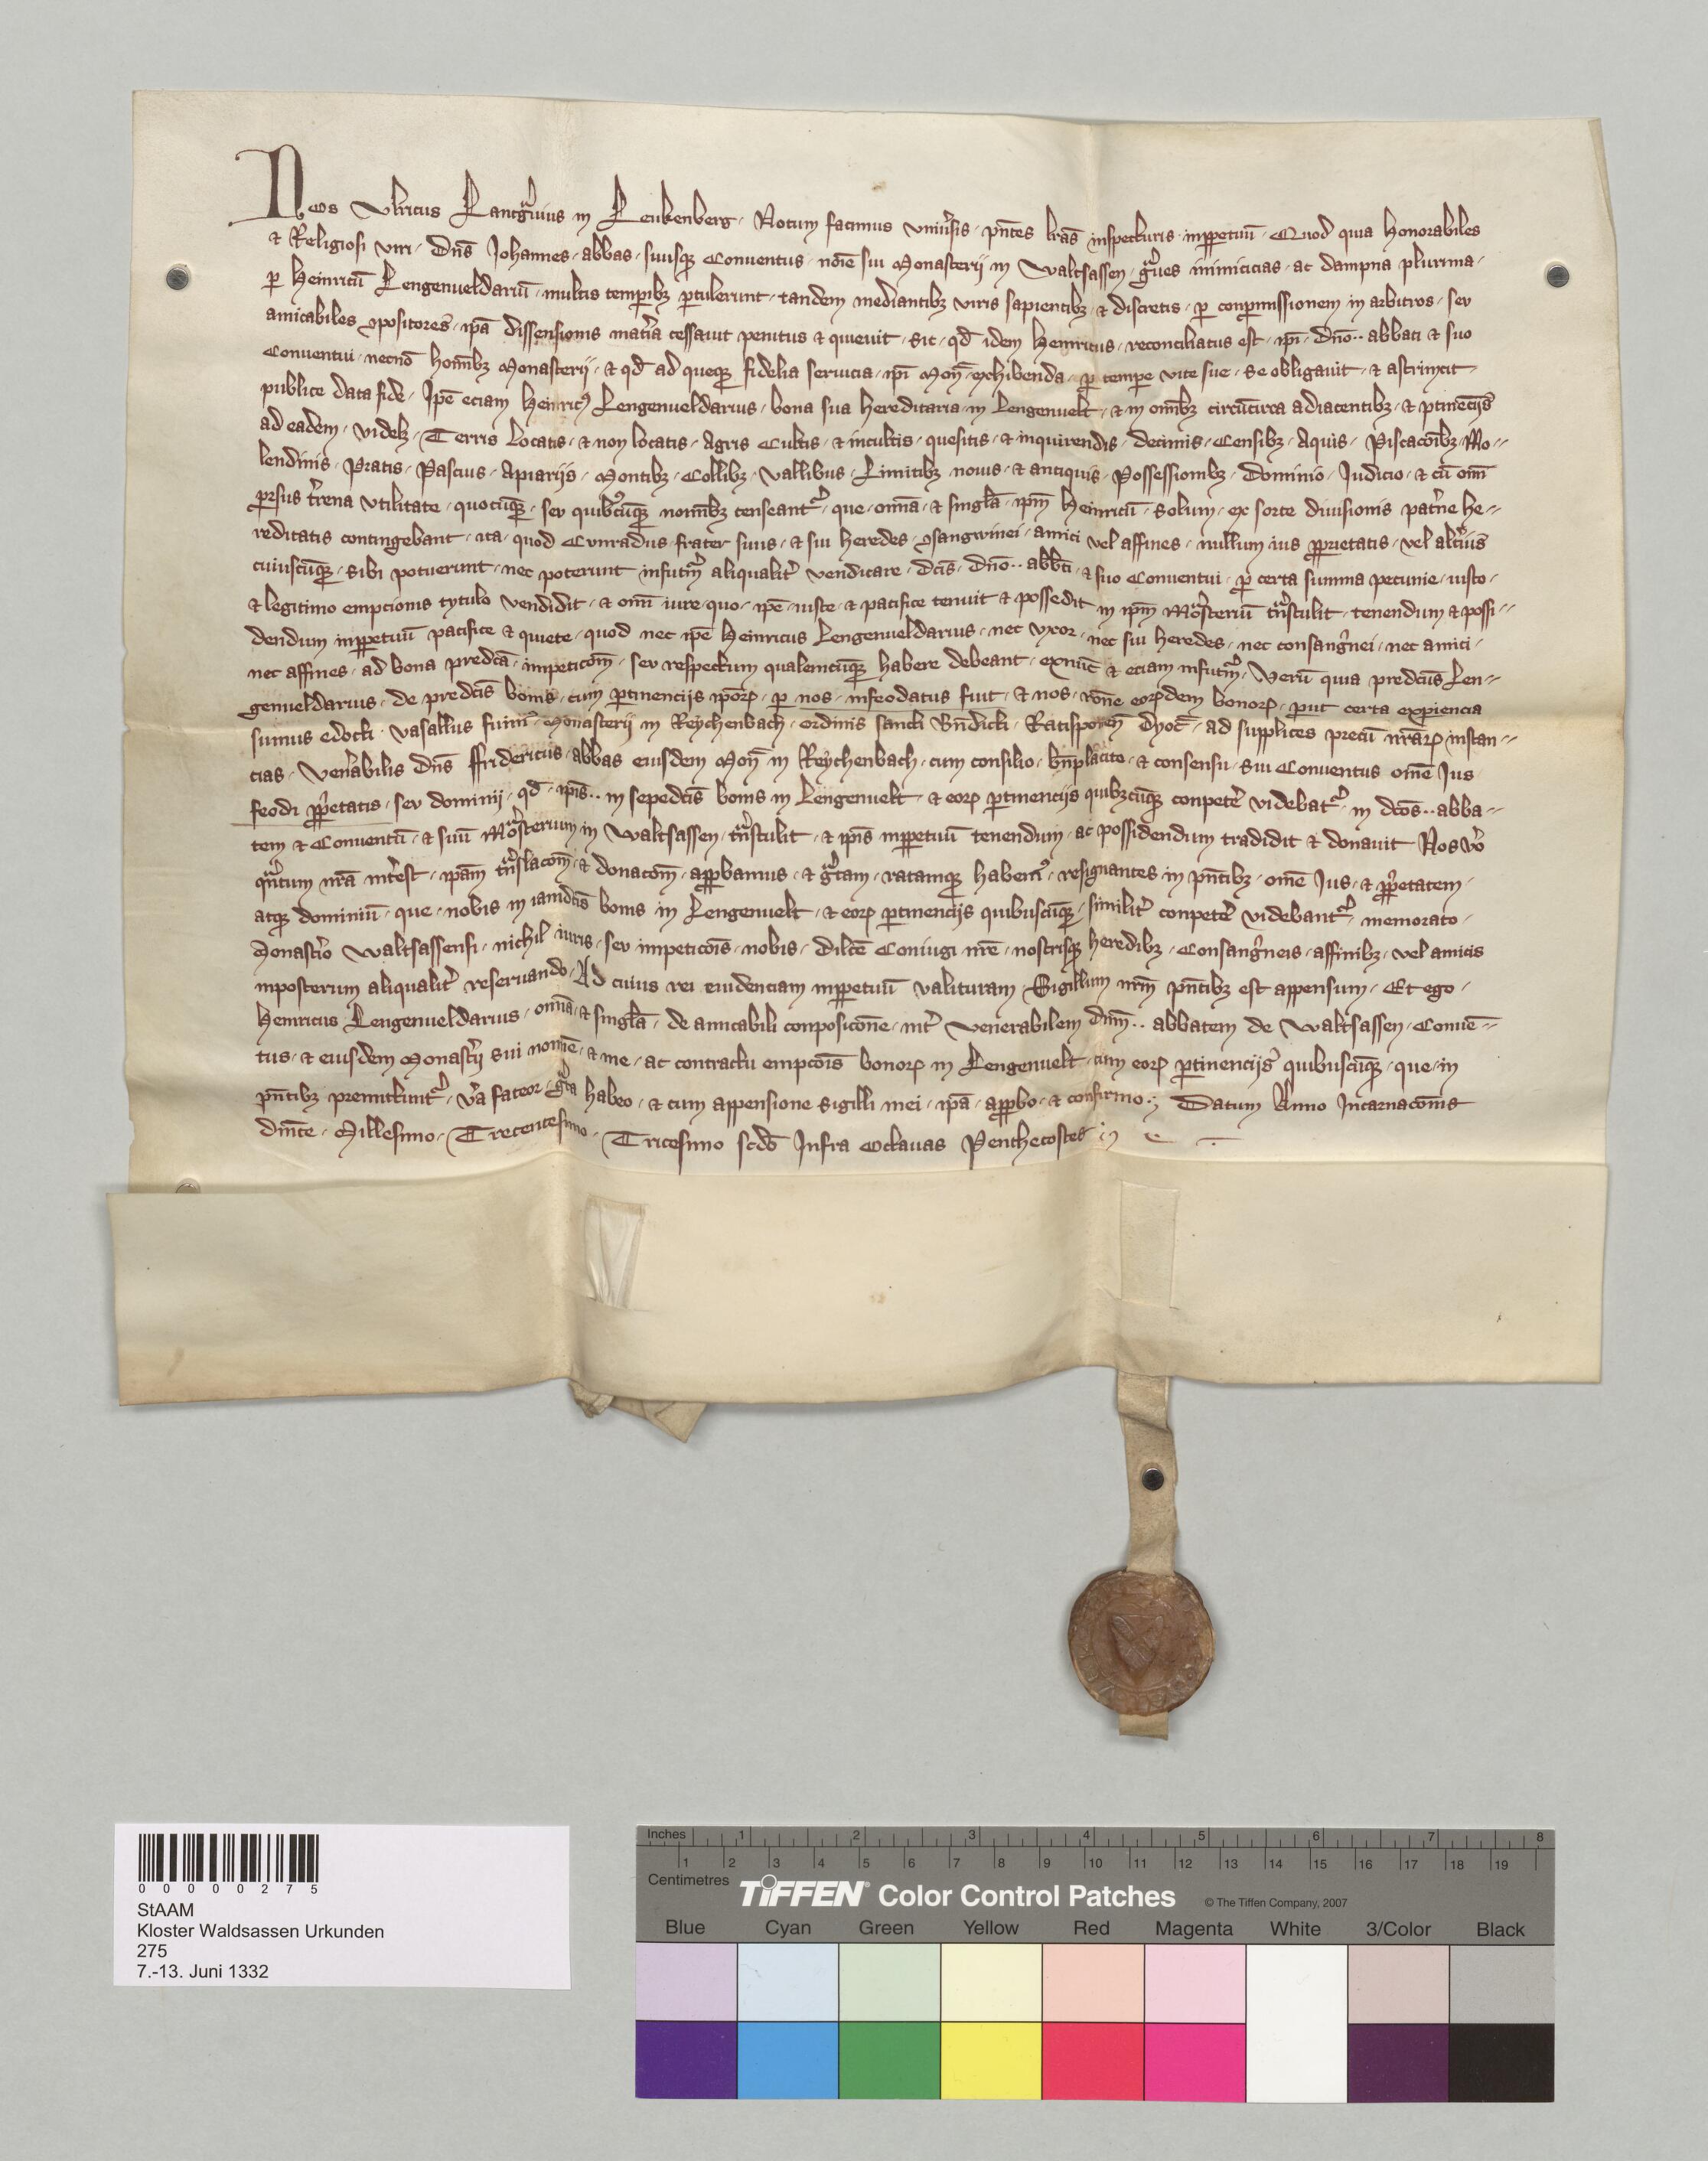 Nos Vlricus Lantg̃uius in Leukenberg · Notum facimus vniũsis · p̃ntes l̃ras inspecturis · inp̱petuũ · Quod quia Honorabiles
et Religiosi viri · Dñs Johannes · abbas · suusq̧ Conuentus · noĩe sui Monasterij in Waltsassen · g̃ues inimicicias · ac dampna plurima ·
p̱ Heinricũ Lengenueldariũ · multis temp̱ibꝫ p̱tulerunt · tandem mediantibꝫ viris sapientibꝫ · et discretis · p̱ conp̱missionem in arbitros · sev
amicabiles ꝯpositores · ip̃a dissensionis mat̃ia cessauit penitus et quieuit · sic · qd̃ idem Heinricus · reconciliatus est · ip̃i · dñо ·· abbati et suo
Conuentui · necnõ hom̃ibꝫ Monasterij · et qd̃ ad queq̧ fidelia seruicia · ip̃i Moñ · exhibenda · p̱ temp̱e vite sue · se obligauit · et astrinxit
publice data fide · Ip̃e eciam Heinricꝰ Lengenueldarius · bona sua hereditaria · in Lengenuelt · et in om̃ibꝫ circũcirca adiacentibꝫ · et p̱tinẽcijs
ad eadem · videlꝫ · Terris locatis · et non locatis · Agris Cultis · et incultis · quesitis · et inquirendis · decimis · Censibꝫ · Aquis · Piscacõibꝫ · Mo=
lendinis · Pratis · Pascuis · Apiarijs · Montibꝫ · Collibꝫ · Vallibus · Limitibꝫ nouis · et antiquis · Possessionibꝫ · Dominio · Iudicio · et cũ om̃i
p̱rsus t̃rena vtilitate · quocũq̧ · sev quibꝰcũq̧ nom̃ibꝫ censeantᷣ · que · om̃ia · et sing̃la · ip̃m Heinricũ · solum · ex sorte diuisionis pat̃ne he=
reditatis contingebant · ita · quod Cvnradus · frater suus · et sui heredes · ꝯsangwinei · amici vel affines · nullum ius p̱prietatis · vel alt̃ius
cuiuscũq̧ · sibi potuerunt · nec poterunt infut̃m aliqualit̃ vendicare · dc̃is · dñо ·· abb̃ti · et suo Conuentui · p̱ certa summa pecunie · iusto ·
et legitimo empcionis tytulo vendidit · et om̃i iure · quo · ip̃e · iuste · et pacifice tenuit et possedit in ip̃m Mo̊steriũ t̃nstulit · tenendum et possi=
dendum inp̱petuũ pacifice et quiete · quod nec ip̃e Heinricus Lengenueldarius · nec vxor · nec sui heredes · nec consang̃nei · nec amici ·
nec affines · ad bona predc̃a · inpeticõm · sev respectum qualemcũq̧ habere debeant · exnũc et eciam infut̃m · Verũ quia predc̃us Len=
genueldarius · de predc̃is bonis · cum p̱tinencijs ip̃oꝝ · p̱ nos · infeodatus fuit · et nos · rõne eoꝝdem bonoꝝ · p̱ut certa exp̱iencia
sumus edocti · vasallus fuim̃ · Monasterij in Reychenbach · ordinis sancti Bñdicti · Ratisponeñ dyoc̃ · ad supplices precũ nr̃aꝝ instan=
cias · Veñabilis dñs ffridericus · abbas eiusdem Moñ in Reychenbach · cum consilio · bñplacito · et consensu · sui Conuentus om̃e Ius
feodi p̱p̃etatis · sev dominij · qd̃ · ip̃is ·· in sepedc̃is bonis in Lengenuelt · et eoꝝ p̱tinencijs quibꝫcũq̧ conpeteꝛ̃ videbatᷣ · in dc̃os ·· abba=
tem et Conuentũ · et suũ Mo̊sterium in Waltsassen · t̃nstulit · et ip̃is inp̱petuũ tenendum · ac possidendum tradidit et donauit Nos v̊o
q̃ntum nr̃a int̃est · ip̃am t̃nslacõm · et donacõm · app̱bamus · et g̃tam · ratamq̧ habemꝰ · resignantes in p̃ntibꝫ · om̃e Ius · et p̱p̃etatem ·
atq̧ dominiũ · que · nobis in iamdc̃is bonis in Lengenuelt · et eoꝝ p̱tinencijs quibuscũq̧ · similit̃ conpeteꝛ̃ videbantᷣ · memorato ·
Monast̃io Waltsassensi · nichil iuris · sev inpeticõis · nobis · dilc̃e Coniugi nr̃e · nostrisq̧ heredibꝫ · Consang̃neis · affinibꝫ · vel amicis
inposterum aliqualit̃ reseruando · Ad cuius rei euidenciam inp̱petuũ valituram Sigillum nr̃m p̃ntibꝫ est appensum · Et ego ·
Heinricus Lengenueldarius · om̃ia · et sing̃la · de amicabili conposicõne · int̃ Venerabilem dñm ·· abbatem de Waltsassen · Conuẽ=
tus · et eiusdem Monast̃ij sui nom̃ie · et me · ac contractu empcõis bonoꝝ in Lengenuelt · cum eoꝝ p̱tinencijs quibuscũq̧ · que · in
p̃ntibꝫ premittuntᷣ · v̊a fateor · g̃ta habeo · et cum appensione sigilli mei · ip̃a · app̱bo · et confirmo · Datum Anno Incarnacõnis
dñice · Millesimo · Trecentesimo · Tricesimo sc̃do Infra Octauas Penthecostes
0 0 0 0 0 2 7 5
StAAM
Kloster Waldsassen Urkunden
275
7.-13. Juni 1332
Inches 1 2 3 4 5 6 7 8
1 2 3 4 5 6 7 8 9 10 11 12 13 14 15 16 17 18 19
Centimetres
TIFFEN® Color Control Patches © The Tiffen Company, 2007
Blue Cyan Green Yellow Red Magenta White 3/Color Black